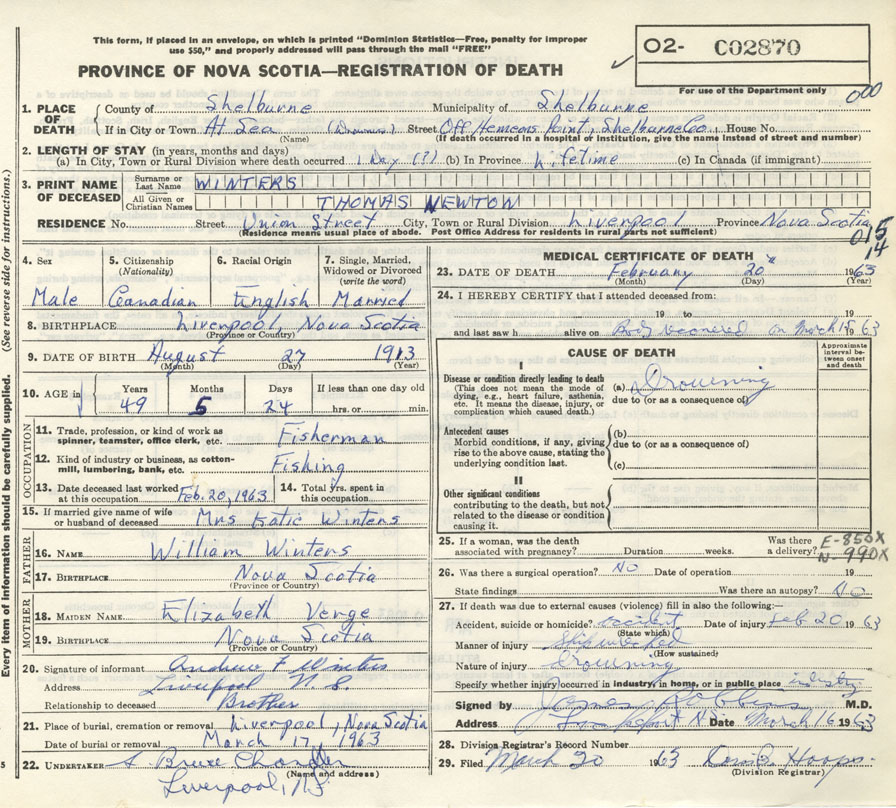 This form, if placed in an envelope, on which is printed "Dominion Statistics—Free, penalty for improper
use $50," and properly addressed will pass through the mail "FREE"
O2- C02870
PROVINCE OF NOVA SCOTIA—REGISTRATION OF DEATH
For use of the Department only
000
1. PLACE OF DEATH County of Shelburne Municipality of Shelburne
If in City or Town At Sea (Drowned) Street Off Hemeons Point, Shelburne Co. House No.
(Name) (If death occurred in a hospital or institution, give the name instead of street and number)
2. LENGTH OF STAY (in years, months and days)
(a) In City, Town or Rural Division where death occurred 1 Day (?) (b) In Province Lifetime (c) In Canada (if immigrant)
3. PRINT NAME OF DECEASED Surname or Last Name WINTERS
All Given or Christian Names THOMAS NEWTON
RESIDENCE No. Street Union Street City, Town or Rural Division Liverpool Province Nova Scotia
(Residence means usual place of abode. Post Office Address for residents in rural parts not sufficient)
015
14
4. Sex 5. Citizenship (Nationality) 6. Racial Origin 7. Single, Married, Widowed or Divorced (write the word)
Male Canadian English Married
8. BIRTHPLACE Liverpool, Nova Scotia
(Province or Country)
9. DATE OF BIRTH August 27 1913
(Month) (Day) (Year)
10. AGE in Years Months Days If less than one day old
49 5 24 hrs. or min.
OCCUPATION
11. Trade, profession, or kind of work as spinner, teamster, office clerk, etc. Fisherman
12. Kind of industry or business, as cotton-mill, lumbering, bank, etc. Fishing
13. Date deceased last worked at this occupation Feb. 20, 1963 14. Total yrs. spent in this occupation
15. If married give name of wife or husband of deceased Mrs Katie Winters
FATHER
16. NAME William Winters
17. BIRTHPLACE Nova Scotia
(Province or Country)
MOTHER
18. MAIDEN NAME Elizabeth Verge
19. BIRTHPLACE Nova Scotia
(Province or Country)
20. Signature of informant Andrew F Winters
Address Liverpool N.S.
Relationship to deceased Brother
21. Place of burial, cremation or removal Liverpool, Nova Scotia
Date of burial or removal March 17, 1963
22. UNDERTAKER Bruce Chandler
(Name and address)
Liverpool, NS
MEDICAL CERTIFICATE OF DEATH
23. DATE OF DEATH February 20 1963
(Month) (Day) (Year)
24. I HEREBY CERTIFY that I attended deceased from:
19 to 19
and last saw h alive on Body recovered on March 15 1963
CAUSE OF DEATH
Approximate interval between onset and death
I
Disease or condition directly leading to death (a) Drowning
(This does not mean the mode of dying, e.g., heart failure, asthenia, etc. It means the disease, injury, or complication which caused death.)
due to (or as a consequence of)
Antecedent causes (b)
Morbid conditions, if any, giving rise to the above cause, stating the underlying condition last.
due to (or as a consequence of)
(c)
II
Other significant conditions
contributing to the death, but not related to the disease or condition causing it.
25. If a woman, was the death associated with pregnancy? Duration weeks. Was there a delivery?
E-850X
N-990X
26. Was there a surgical operation? NO Date of operation 19
State findings Was there an autopsy? NO
27. If death was due to external causes (violence) fill in also the following:—
Accident, suicide or homicide? accident Date of injury Feb 20 1963
(State which)
Manner of injury Shipwrecked
(How sustained)
Nature of injury Drowning
Specify whether injury occurred in industry, in home, or in public place industry
Signed by James Robbins M.D.
Address Lockeport NS Date March 16 1963
28. Division Registrar's Record Number
29. Filed March 20 1963
(Division Registrar)
Every item of information should be carefully supplied. (See reverse side for instructions.)
5